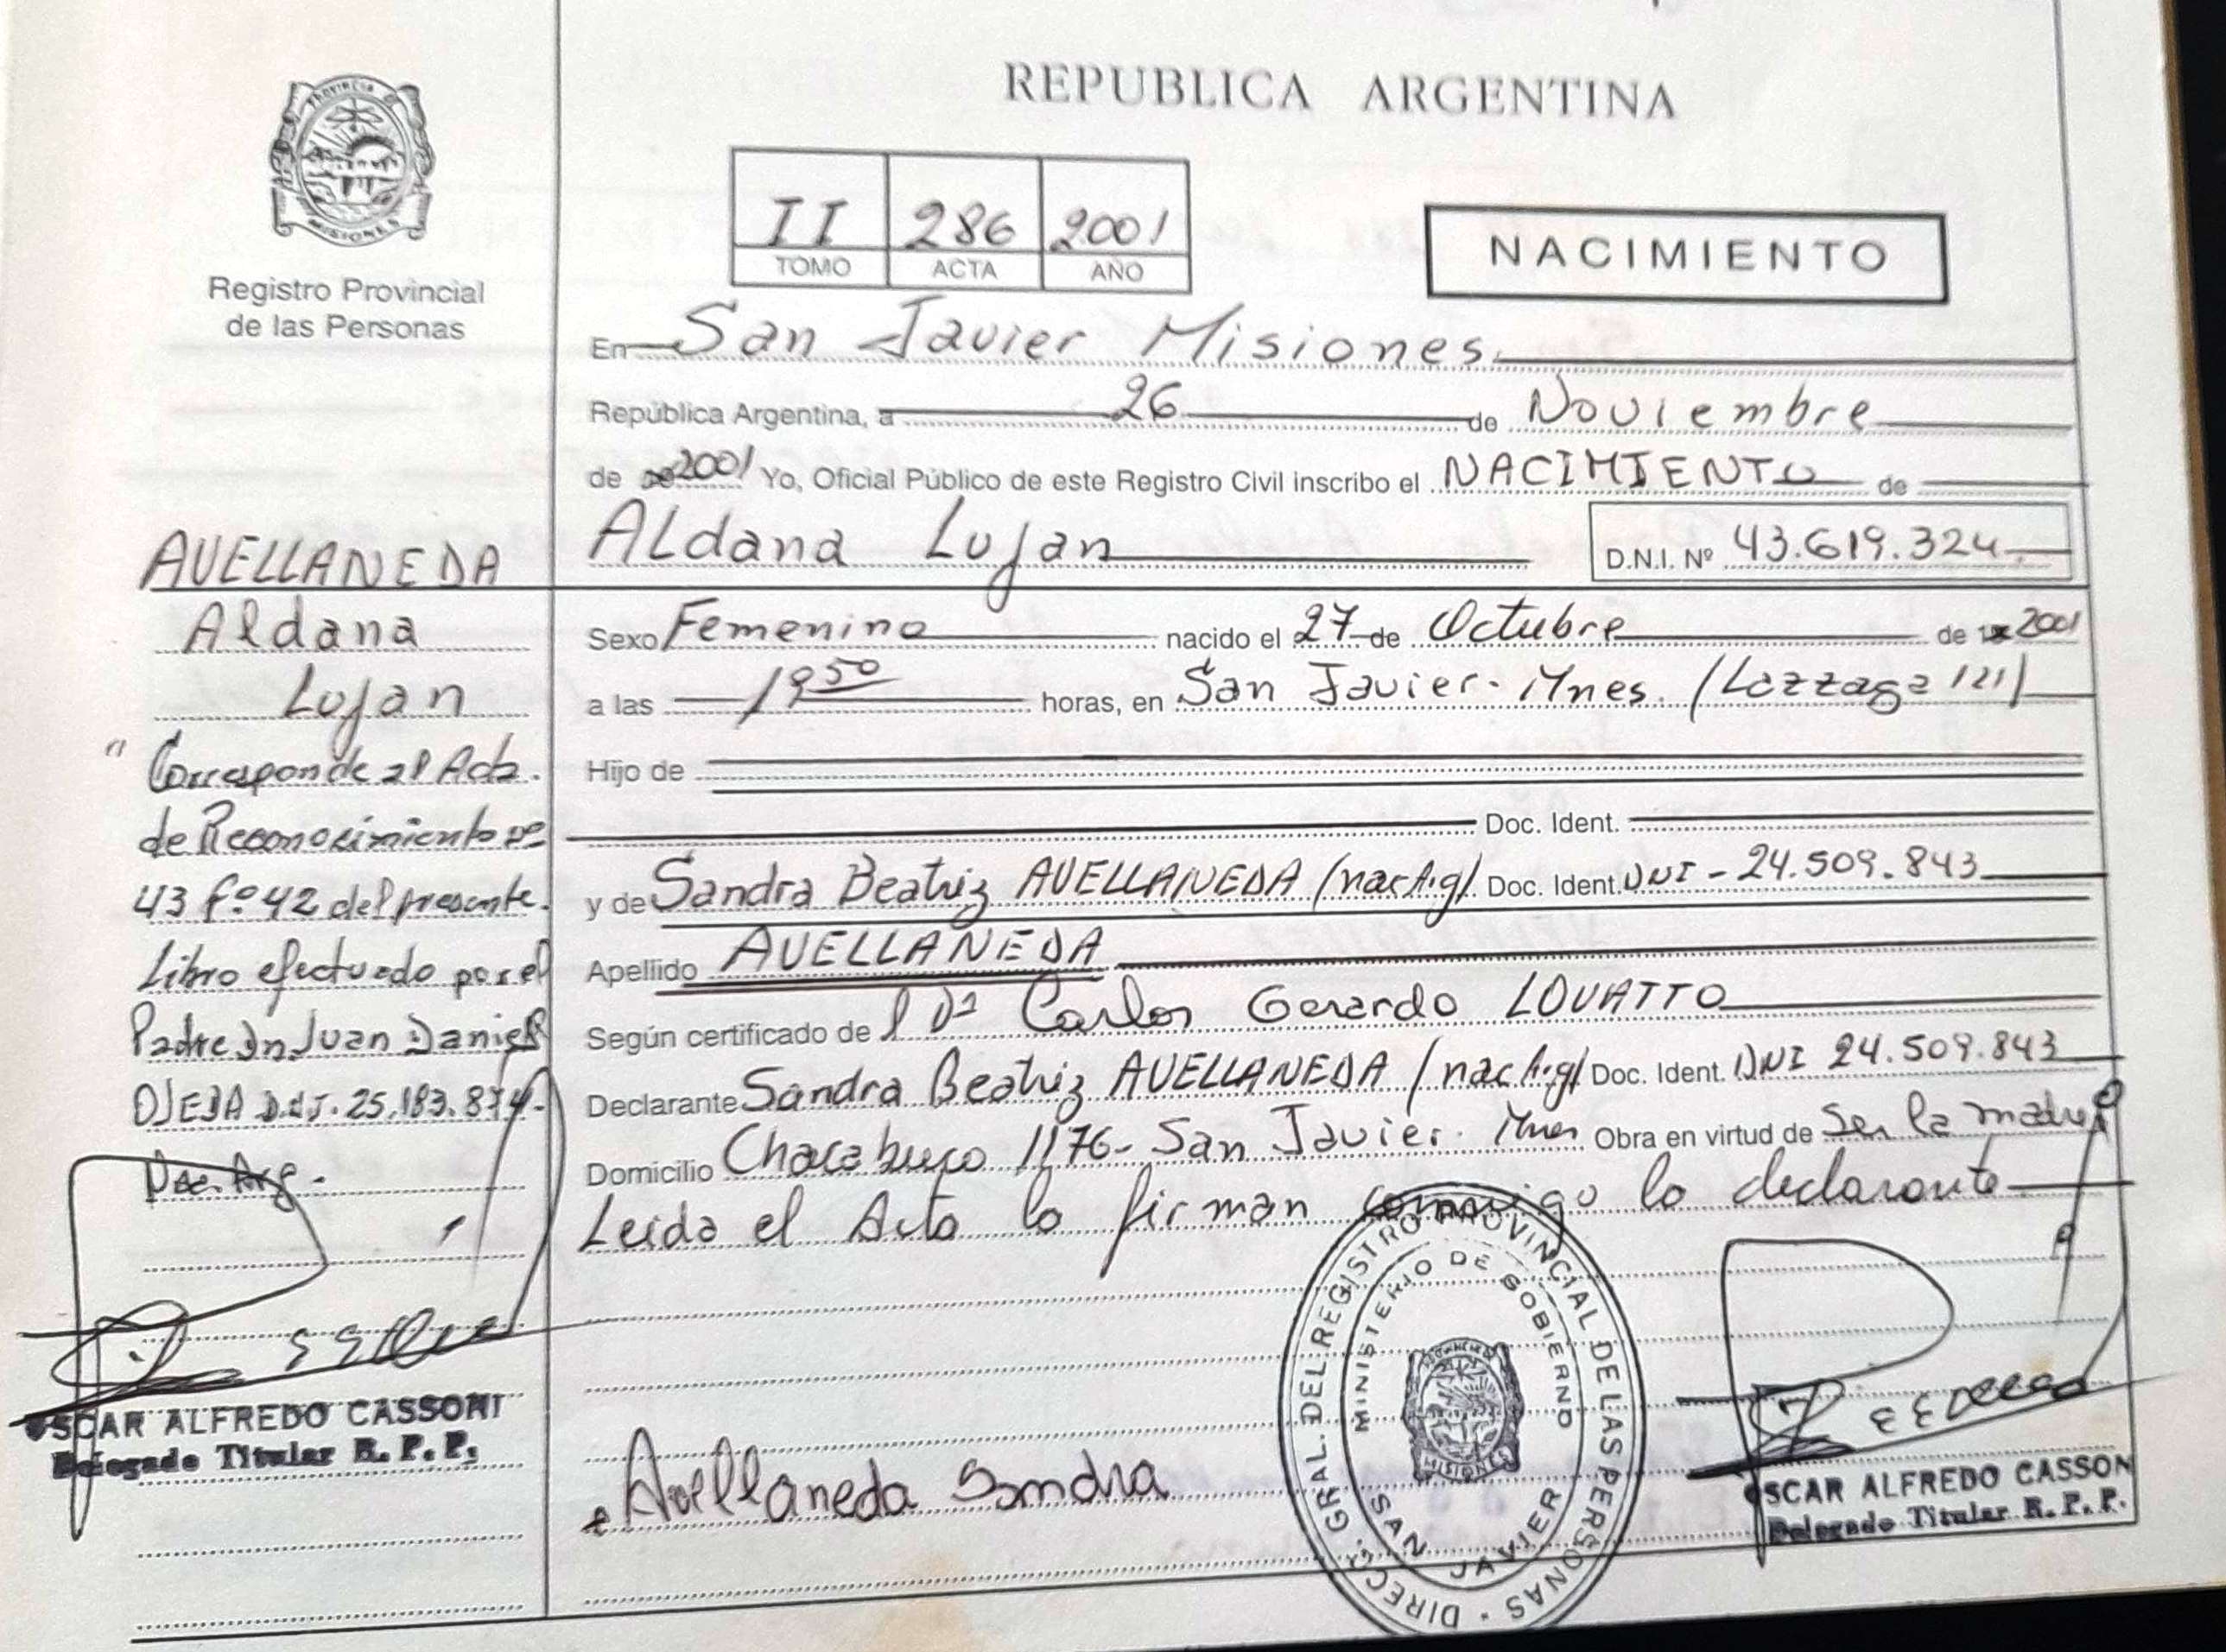 PROVINCIA
MISIONES
Registro Provincial
de las Personas
AVELLANEDA
Aldana
Lujan
"Corresponde al Acta.
de Reconocimiento Nº
43 fº 42 del presente.
Libro efectuado por el
Padre Dn Juan Daniel
OJEDA D.N.I. 25.183.874-
Nac. Arg.
OSCAR ALFREDO CASSONI
Delegado Titular R. P. P.
REPUBLICA ARGENTINA
II 286 2001
TOMO ACTA AÑO
NACIMIENTO
En San Javier Misiones
República Argentina, a 26 de Noviembre
de 2001 Yo, Oficial Público de este Registro Civil inscribo el NACIMIENTO de
Aldana Lujan D.N.I. Nº 43.619.324
Sexo Femenino nacido el 27 de Octubre de 2001
a las 19 50 horas, en San Javier- Mnes. (Lazzaga 121)
Hijo de
Doc. Ident.
y de Sandra Beatriz AVELLANEDA (nac Arg) Doc. Ident. DNI - 24.509.843
Apellido AVELLANEDA
Según certificado de Carlos Gerardo LOVATTO
Declarante Sandra Beatriz AVELLANEDA (nac Arg) Doc. Ident. DNI 24.509.843
Domicilio Chacabuco 1176- San Javier- Mnes Obra en virtud de Ser la madre
Leida el Acta la firman conmigo la declarante
Avellaneda Sandra
DIRECC. GRAL. DEL REGISTRO PROVINCIAL DE LAS PERSONAS
MINISTERIO DE GOBIERNO
PROVINCIA
MISIONES
SAN JAVIER
OSCAR ALFREDO CASSON
Delegado Titular R. P. P.